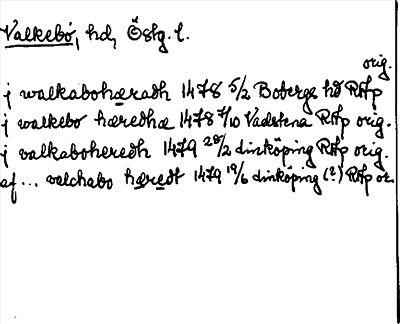 Valkebo, hd, Östg. l.
orig.
j walkabohæradh 1478 5/2 Bobergs hd RAp
j walkebo hæredhæ 1478 7/10 Vadstena RAp orig.
j valkaboheredh 1479 28/2 Linköping RAp orig.
af... valchabo hæredt 1479 19/6 Linköping (?) RAp or.